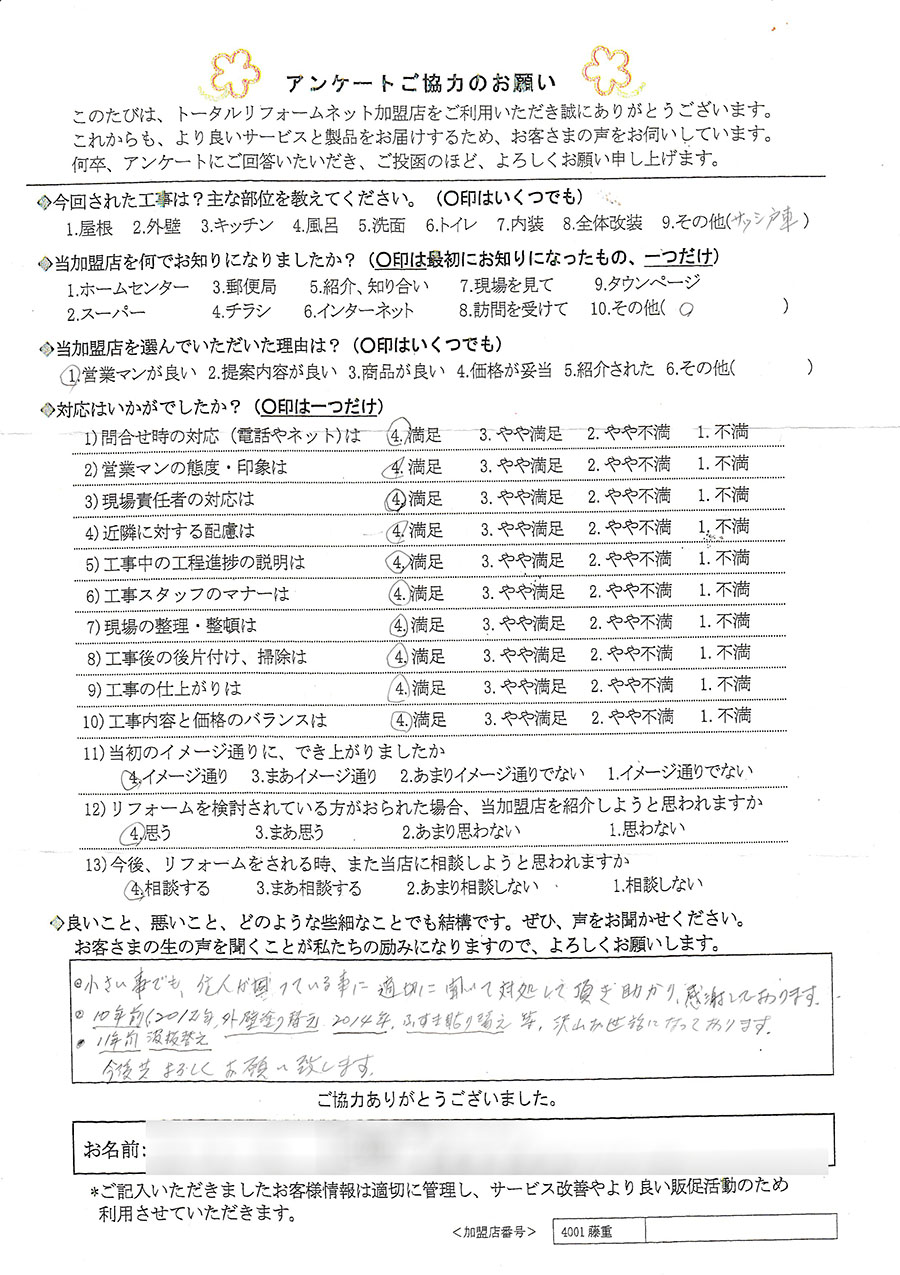 アンケートご協力のお願い
このたびは、トータルリフォームネット加盟店をご利用いただき誠にありがとうございます。
これからも、より良いサービスと製品をお届けするため、お客さまの声をお伺いしています。
何卒、アンケートにご回答いたいだき、ご投函のほど、よろしくお願い申し上げます。
◇今回された工事は？主な部位を教えてください。（〇印はいくつでも）
1.屋根 2.外壁 3.キッチン 4.風呂 5.洗面 6.トイレ 7.内装 8.全体改装 9.その他(サッシ戸車)
◇当加盟店を何でお知りになりましたか？（〇印は最初にお知りになったもの、一つだけ）
1.ホームセンター 3.郵便局 5.紹介、知り合い 7.現場を見て 9.タウンページ
2.スーパー 4.チラシ 6.インターネット 8.訪問を受けて 10.その他( ○ )
◇当加盟店を選んでいただいた理由は？（〇印はいくつでも）
1.営業マンが良い 2.提案内容が良い 3.商品が良い 4.価格が妥当 5.紹介された 6.その他( )
◇対応はいかがでしたか？（〇印は一つだけ）
1)問合せ時の対応（電話やネット)は 4.満足 3.やや満足 2.やや不満 1.不満
2)営業マンの態度・印象は 4.満足 3.やや満足 2.やや不満 1.不満
3)現場責任者の対応は 4.満足 3.やや満足 2.やや不満 1.不満
4)近隣に対する配慮は 4.満足 3.やや満足 2.やや不満 1.不満
5)工事中の工程進捗の説明は 4.満足 3.やや満足 2.やや不満 1.不満
6)工事スタッフのマナーは 4.満足 3.やや満足 2.やや不満 1.不満
7)現場の整理・整頓は 4.満足 3.やや満足 2.やや不満 1.不満
8)工事後の後片付け、掃除は 4.満足 3.やや満足 2.やや不満 1.不満
9)工事の仕上がりは 4.満足 3.やや満足 2.やや不満 1.不満
10)工事内容と価格のバランスは 4.満足 3.やや満足 2.やや不満 1.不満
11)当初のイメージ通りに、でき上がりましたか
4.イメージ通り 3.まあイメージ通り 2.あまりイメージ通りでない 1.イメージ通りでない
12)リフォームを検討されている方がおられた場合、当加盟店を紹介しようと思われますか
4.思う 3.まあ思う 2.あまり思わない 1.思わない
13)今後、リフォームをされる時、また当店に相談しようと思われますか
4.相談する 3.まあ相談する 2.あまり相談しない 1.相談しない
◇良いこと、悪いこと、どのような些細なことでも結構です。ぜひ、声をお聞かせください。
お客さまの生の声を聞くことが私たちの励みになりますので、よろしくお願いします。
小さい事でも、住人が困っている事に適切に聞いて対処して頂き助かり、感謝しております。
10年前(2012年、外壁塗り替え 2014年、ふすま貼り替え 等、沢山お世話になっております。
11年前
今後共よろしくお願い致します。
ご協力ありがとうございました。
お名前:
*ご記入いただきましたお客様情報は適切に管理し、サービス改善やより良い販促活動のため
利用させていただきます。
＜加盟店番号＞ 4001藤重